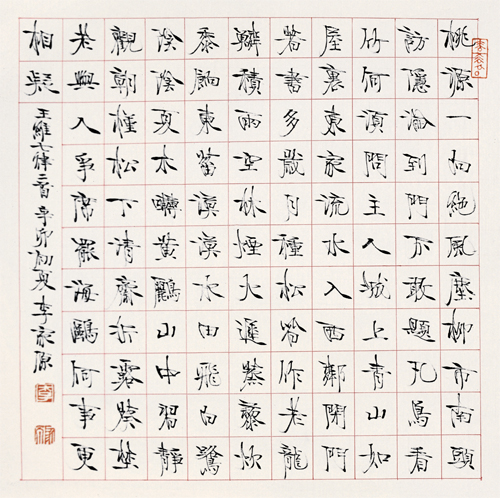 桃源一向絕風塵柳市南頭
訪隱淪到門不敢題凡鳥看
竹何須問主人城上青山如
屋裏東家流水入西鄰閉門
著書多歲月種松皆作老龍
鱗積雨空林煙火遲蒸藜炊
黍餉東菑漠漠水田飛白鷺
陰陰夏木囀黃鸝山中習靜
觀朝槿松下清齋折露葵野
老與人爭席罷海鷗何事更
相疑
王維七律二首辛卯初夏李家原